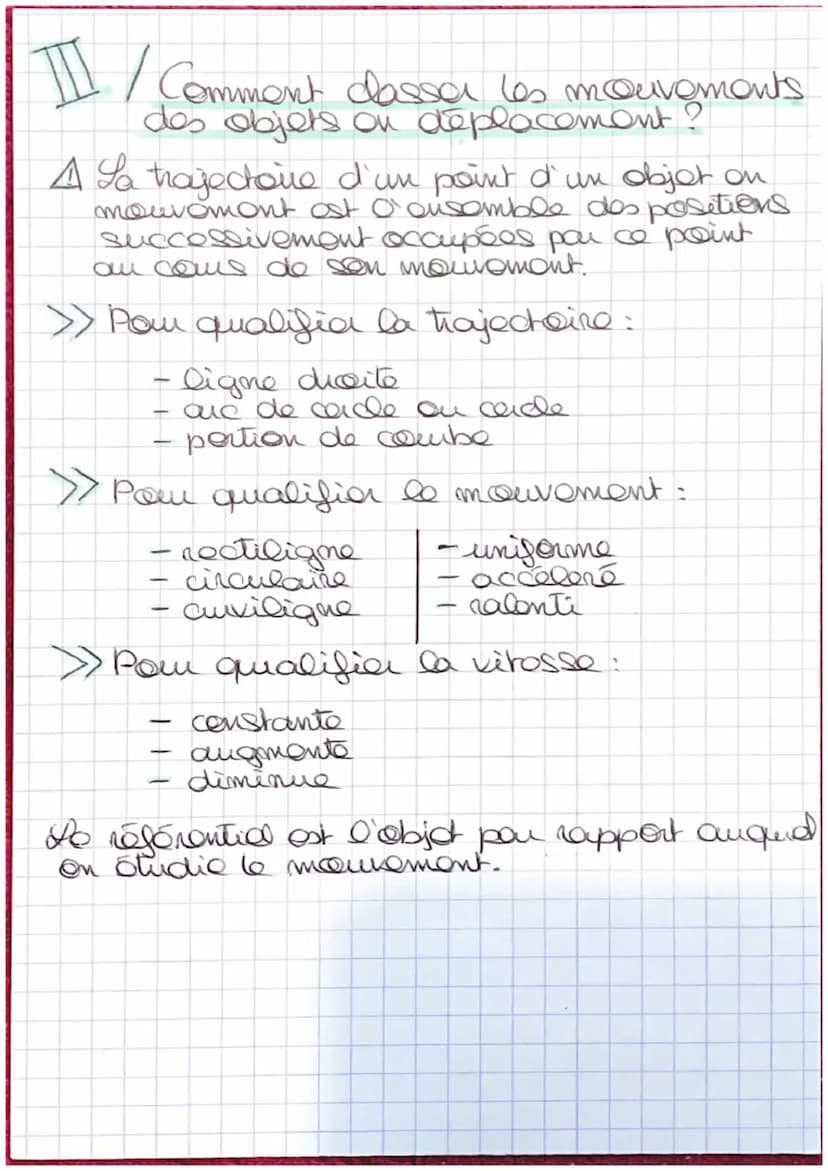 III / Comment classer les mouvements
des objets en déplacement ?
⚠ La trajectoire d'un point d'un objet en
mouvement est l'ensemble des positions
successivement occupées par ce point
au cours de son mouvement.
>> Pour qualifier la trajectoire :
- ligne droite
- arc de cercle ou cercle
- portion de courbe
>> Pour qualifier le mouvement :
- rectiligne | - uniforme
- circulaire | - accéléré
- curviligne | - ralenti
>> Pour qualifier la vitesse :
- constante
- augmente
- diminue
Le référentiel est l'objet par rapport auquel
on étudie le mouvement.